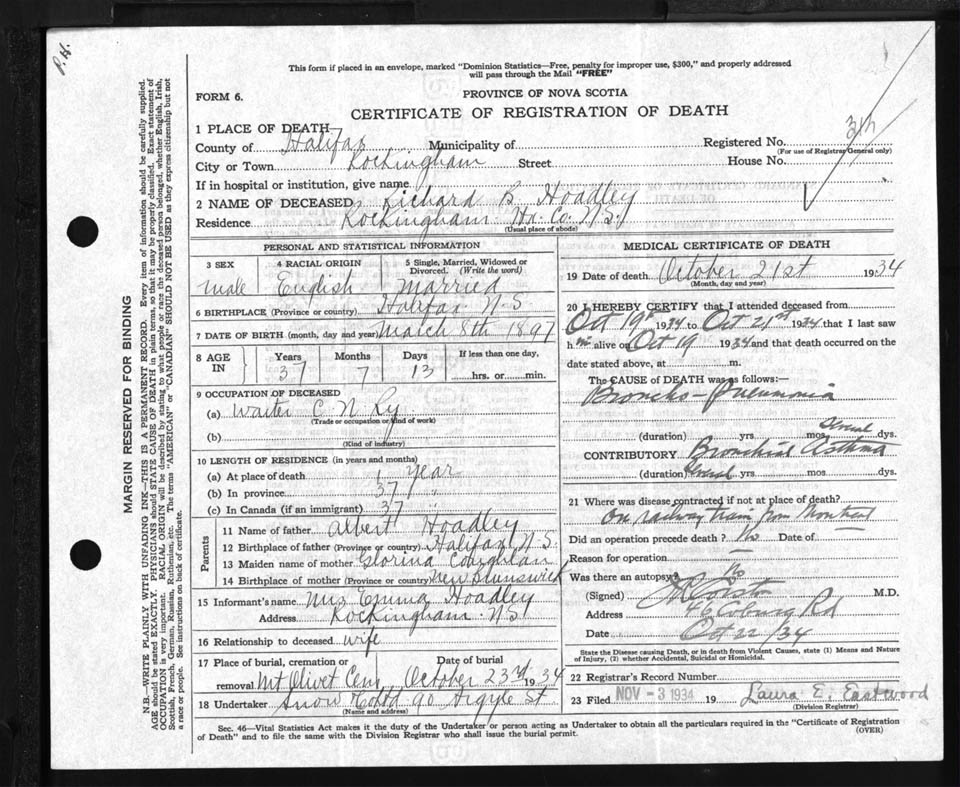 P. H.
This form if placed in an envelope, marked "Dominion Statistics—Free, penalty for improper use, $300," and properly addressed
will pass through the Mail "FREE"
FORM 6.
PROVINCE OF NOVA SCOTIA
CERTIFICATE OF REGISTRATION OF DEATH
1 PLACE OF DEATH—
County of Halifax Municipality of Registered No.
(For use of Registrar General only)
City or Town Rockingham Street House No.
If in hospital or institution, give name
2 NAME OF DECEASED Richard B. Hoadley
Residence Rockingham Hx. Co. N.S.
(Usual place of abode)
PERSONAL AND STATISTICAL INFORMATION
3 SEX 4 RACIAL ORIGIN 5 Single, Married, Widowed or
Divorced. (Write the word)
male English Married
6 BIRTHPLACE (Province or country) Halifax N-S
7 DATE OF BIRTH (month, day and year) March 8th 1897
8 AGE IN Years Months Days If less than one day,
37 7 13 hrs. or min.
9 OCCUPATION OF DECEASED
(a) Waiter C N Ry
(Trade or occupation or kind of work)
(b)
(Kind of industry)
10 LENGTH OF RESIDENCE (in years and months)
(a) At place of death 1 year
(b) In province 37 "
(c) In Canada (if an immigrant) 37
Parents
11 Name of father Albert Hoadley
12 Birthplace of father (Province or country) Halifax N-S.
13 Maiden name of mother Coughlan
14 Birthplace of mother (Province or country) New Brunswick
15 Informant's name Mrs Emma Hoadley
Address Rockingham NS
16 Relationship to deceased wife
17 Place of burial, cremation or Date of burial
removal Mt Olivet Cem October 23rd 1934
18 Undertaker Snow & Co Ltd 90 Argyle St
(Name and address)
MEDICAL CERTIFICATE OF DEATH
19 Date of death October 21st 1934
(Month, day and year)
20 I HEREBY CERTIFY that I attended deceased from
Oct 19th 1934 to Oct 21st 1934 that I last saw
him alive on Oct 19 1934 and that death occurred on the
date stated above, at m.
The CAUSE OF DEATH was as follows:—
Broncho-Pneumonia
(duration) yrs. mos. several dys.
CONTRIBUTORY Bronchial Asthma
(duration) several yrs. mos. dys.
21 Where was disease contracted if not at place of death?
On railway train from Montreal
Did an operation precede death? No Date of
Reason for operation
Was there an autopsy? No
(Signed) M.D.
Address 46 Coburg Rd
Date Oct 22/34
State the Disease causing Death, or in death from Violent Causes, state (1) Means and Nature
of Injury, (2) whether Accidental, Suicidal or Homicidal.
22 Registrar's Record Number
23 Filed NOV - 3 1934 19 Laura E. Eastwood
(Division Registrar)
Sec. 46—Vital Statistics Act makes it the duty of the Undertaker or person acting as Undertaker to obtain all the particulars required in the "Certificate of Registration
of Death" and to file the same with the Division Registrar who shall issue the burial permit. (OVER)
MARGIN RESERVED FOR BINDING
N.B.—WRITE PLAINLY WITH UNFADING INK—THIS IS A PERMANENT RECORD. Every item of information should be carefully supplied.
AGE should be stated EXACTLY. PHYSICIANS should STATE CAUSE OF DEATH in plain terms, so that it may be properly classified. Exact statement of
OCCUPATION is very important. RACIAL ORIGIN will be described by stating to what people or race the deceased person belonged, whether English, Irish,
Scottish, French, German, Russian, Ruthenian, etc. The terms "AMERICAN" or "CANADIAN" SHOULD NOT BE USED as they express citizenship but not
a race or people. See instructions on back of certificate.